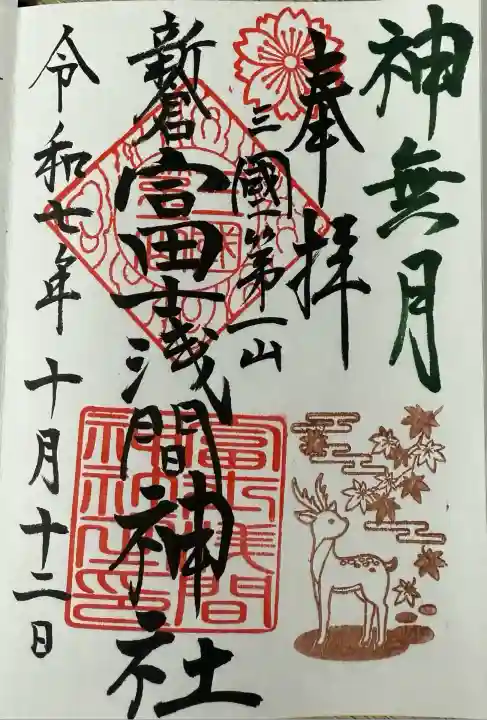 神無月
奉拝
三國第一山
新倉富士浅間神社
令和七年十月十二日
富士浅間
神社之印